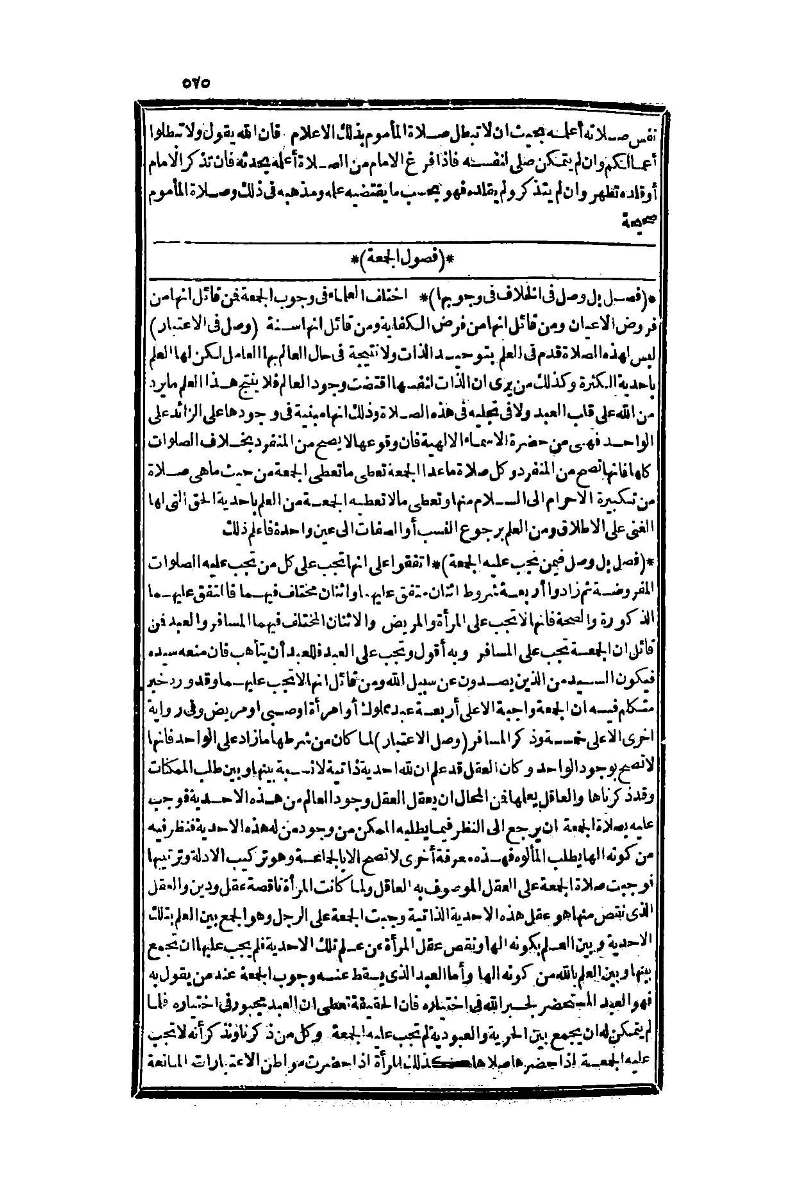 ٥٢٥
نفس صلاته أعلمه بحيث ان لا تبطل صلاة المأموم بذلك الاعلام فان الله يقول ولا تبطلوا
أعمالكم وان لم يتمكن صلى لنفسه فاذا فرغ الامام من الصلاة أعلمه بحدثه فان تذكر الامام
أو قلده تطهر وان لم يتذكر ولم يقلده فهو بحسب ما يقتضيه علمه ومذهبه فى ذلك وصلاة المأموم
صحيحة
*(فصول الجمعة)*
*(فصل بل وصل فى الخلاف فى وجوبها)* اختلف العلماء فى وجوب الجمعة فمن قائل انها من
فروض الاعيان ومن قائل انها من فرض الكفاية ومن قائل انها سنة (وصل فى الاعتبار)
ليس لهذه الصلاة قدم فى العلم بتوحيد الذات ولا نتيجة فى حال العالم بها العامل لكن لها العلم
باحدية الكثرة وكذلك من يرى ان الذات لنفسها اقتضت وجود العالم فلا ينتج هذا العلم ما يرد
من الله على قلب العبد ولا فى تجليه فى هذه الصلاة وذلك انها مبنية فى وجودها على الزائد على
الواحد فهى من حضرة الاسماء الالهية فان وقوعها لا يصح من المنفرد بخلاف الصلوات
كلها فانها تصح من المنفرد وكل صلاة ماعدا الجمعة تعطى ما تعطى الجمعة من حيث ماهى صلاة
من تكبيرة الاحرام الى السلام منها وتعطى ما لا تعطيه الجمعة من العلم باحدية الحق التى لها
الغنى على الاطلاق ومن العلم برجوع النسب أو الصفات الى عين واحدة فاعلم ذلك
*(فصل بل وصل فيمن تجب عليه الجمعة)* اتفقوا على انها تجب على كل من تجب عليه الصلوات
المفروضة ثم زادوا أربعة شروط اثنان متفق عليهما واثنان مختلف فيهما فالمتفق عليهما
الذكورة والصحة فانها لا تجب على المرأة والمريض والاثنان المختلف فيهما المسافر والعبد فمن
قائل ان الجمعة تجب على المسافر وبه أقول وتجب على العبد فللعبد أن يتأهب فان منعه سيده
فيكون السيد من الذين يصدون عن سبيل الله ومن قائل انها لا تجب عليهما وقد ورد خبر
متكلم فيه ان الجمعة واجبة الا على أربعة عبد مملوك أو امرأة أو صبى أو مريض وفى رواية
اخرى الا على خمسة وذكر المسافر (وصل الاعتبار) لما كان من شرطها ما زاد على الواحد فانها
لا تصح بوجود الواحد وكان العقل قد علم ان لله احدية ذاتية لا نسبة بينها وبين طلب الممكنات
وقد ذكرناها والعاقل يعلمها فمن المحال ان يعقل العقل وجود العالم من هذه الاحدية فوجب
عليه بصلاة الجمعة ان يرجع الى النظر فيما يطلبه الممكن من وجود من له هذه الاحدية فنظر فيه
من كونه الها يطلب المألوه فهذه معرفة أخرى لا تصح الا بالجماعة وهو تركيب الادلة وترتيبها
فوجبت صلاة الجمعة على العقل الموصوف به العاقل ولما كانت المرأة ناقصة عقل ودين والعقل
الذى نقص منها هو عقل هذه الاحدية الذاتية وجبت الجمعة على الرجل وهو الجمع بين العلم بتلك
الاحدية وبين العلم بكونه الها ونقص عقل المرأة عن علم تلك الاحدية فلم يجب عليها ان تجمع
بينها وبين العلم بالله من كونه الها وأما العبد الذى يسقط عنه وجوب الجمعة عند من يقول به
فهو العبد المستحضر لجبر الله فى اختياره فان الحقيقة تعطى ان العبد مجبور فى اختياره فلما
لم يتمكن له ان يجمع بين الحرية والعبودية لم تجب عليه الجمعة وكل من ذكرنا ونذكر أنه لا تجب
عليه الجمعة اذا حضرها صلاها كذلك المرأة اذا حضرت مواطن الاعتبارات المانعة